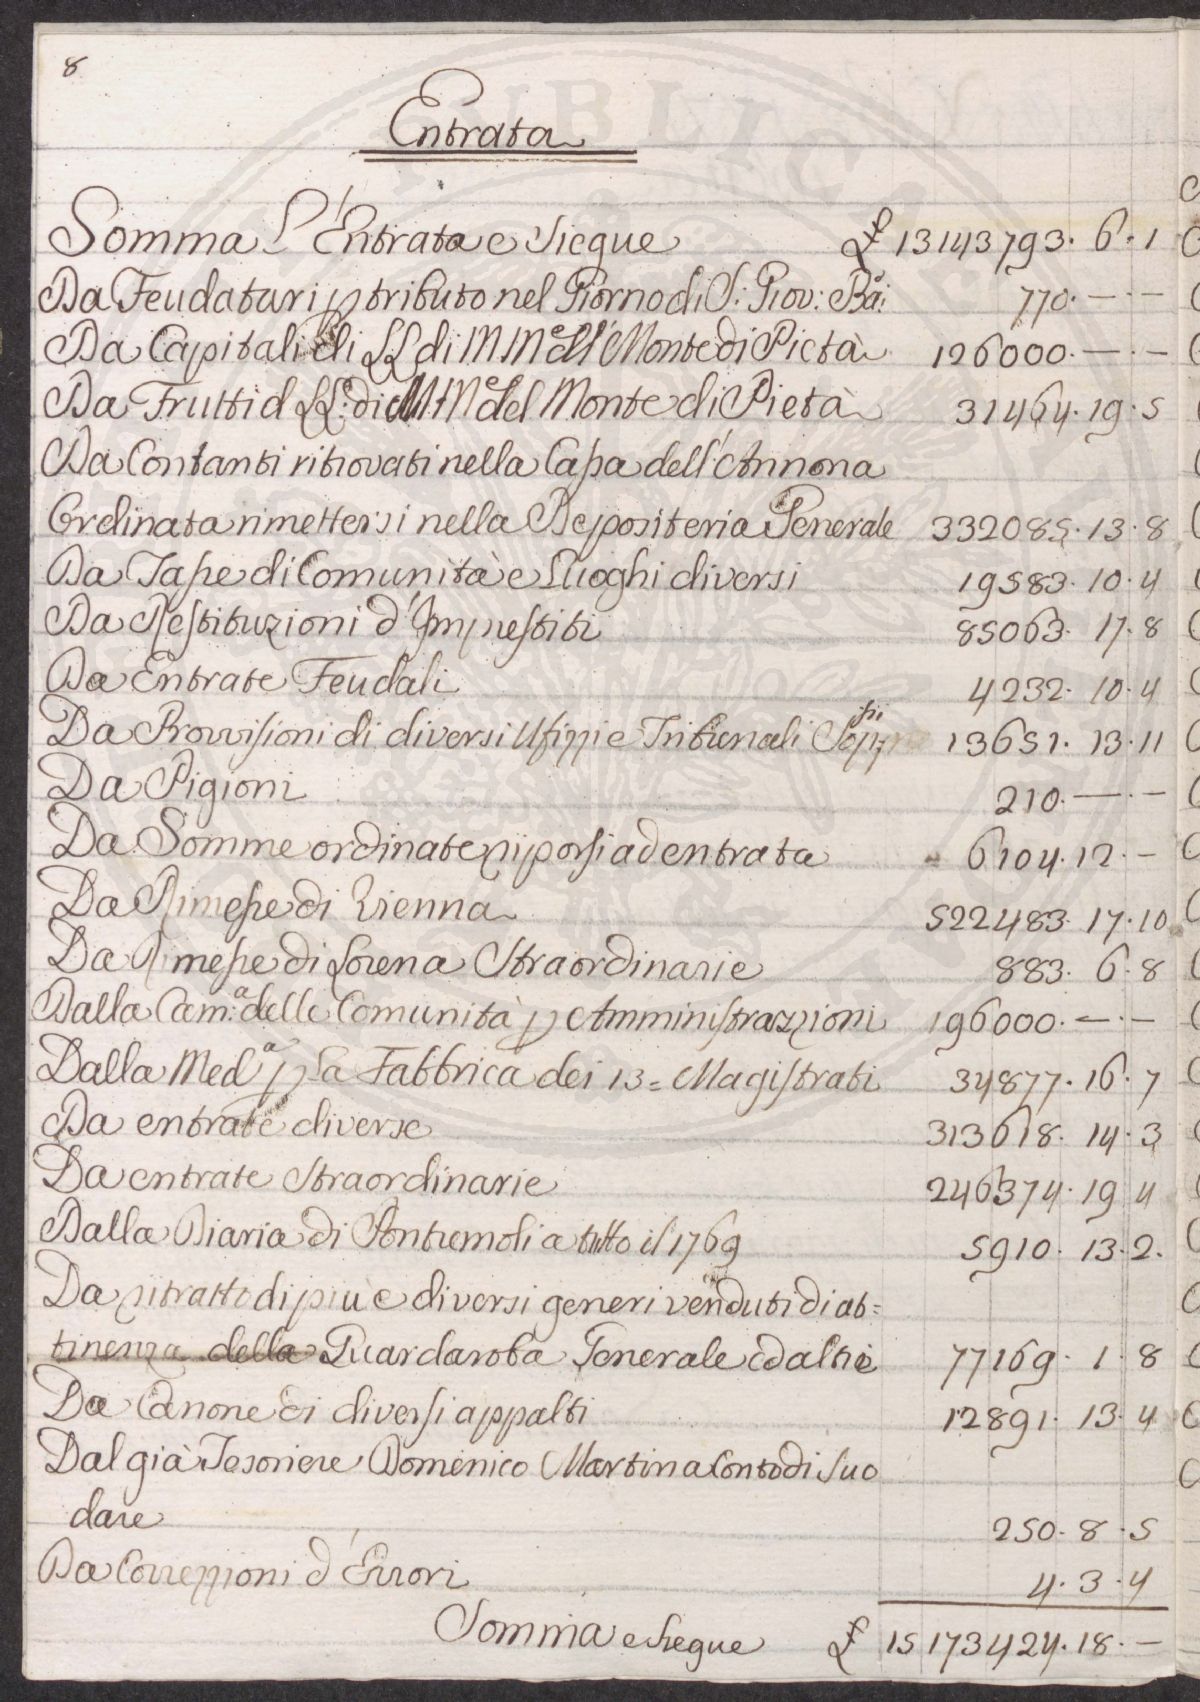 8
Entrata
Somma L'Entrata e Siegue £ 13143793. 6. 1
Da Feudatari p tributo nel Giorno di S: Giov: Ba: 770. — . —
Da Capitali di LL di MMe del Monte di Pietà 126000. — . —
Da Frutti d LL: di MMe del Monte di Pietà 31464. 19. 5
Da Contanti ritrovati nella Cassa dell'Annona
Ordinata rimettersi nella Depositeria Generale 332085. 13. 8
Da Tasse di Comunità e Luoghi diversi 19583. 10. 4
Da Restituzioni d'Imprestiti 85063. 17. 8
Da Entrate Feudali 4232. 10. 4
Da Provvisioni di diversi Ufizzi e Tribunali 13651. 13. 11
Da Pigioni 210. — . —
Da Somme ordinate riporsi ad entrata 6104. 12. —
Da Rimesse di Vienna 522483. 17. 10
Da Rimesse di Lorena Straordinarie 883. 6. 8
Dalla Cam:a delle Comunità p Amministrazzioni 196000. — . —
Dalla Meda p La Fabbrica dei 13= Magistrati 34877. 16. 7
Da entrate diverse 313618. 14. 3
Da entrate Straordinarie 246374. 19 4
Dalla Diaria di Pontremoli a tutto il 1769 5910. 13. 2.
Da ritratto di più e diversi generi venduti di at=
tinenza della Guardaroba Generale ed altre 77169. 1. 8
Da Canone di diversi appalti 12891. 13. 4
Dal già Tesoriere Domenico Martin a Conto di Suo
dare 250. 8. 5
Da Correzzioni d'Errori 4. 3. 4
Somma e Siegue £ 15173424. 18. —